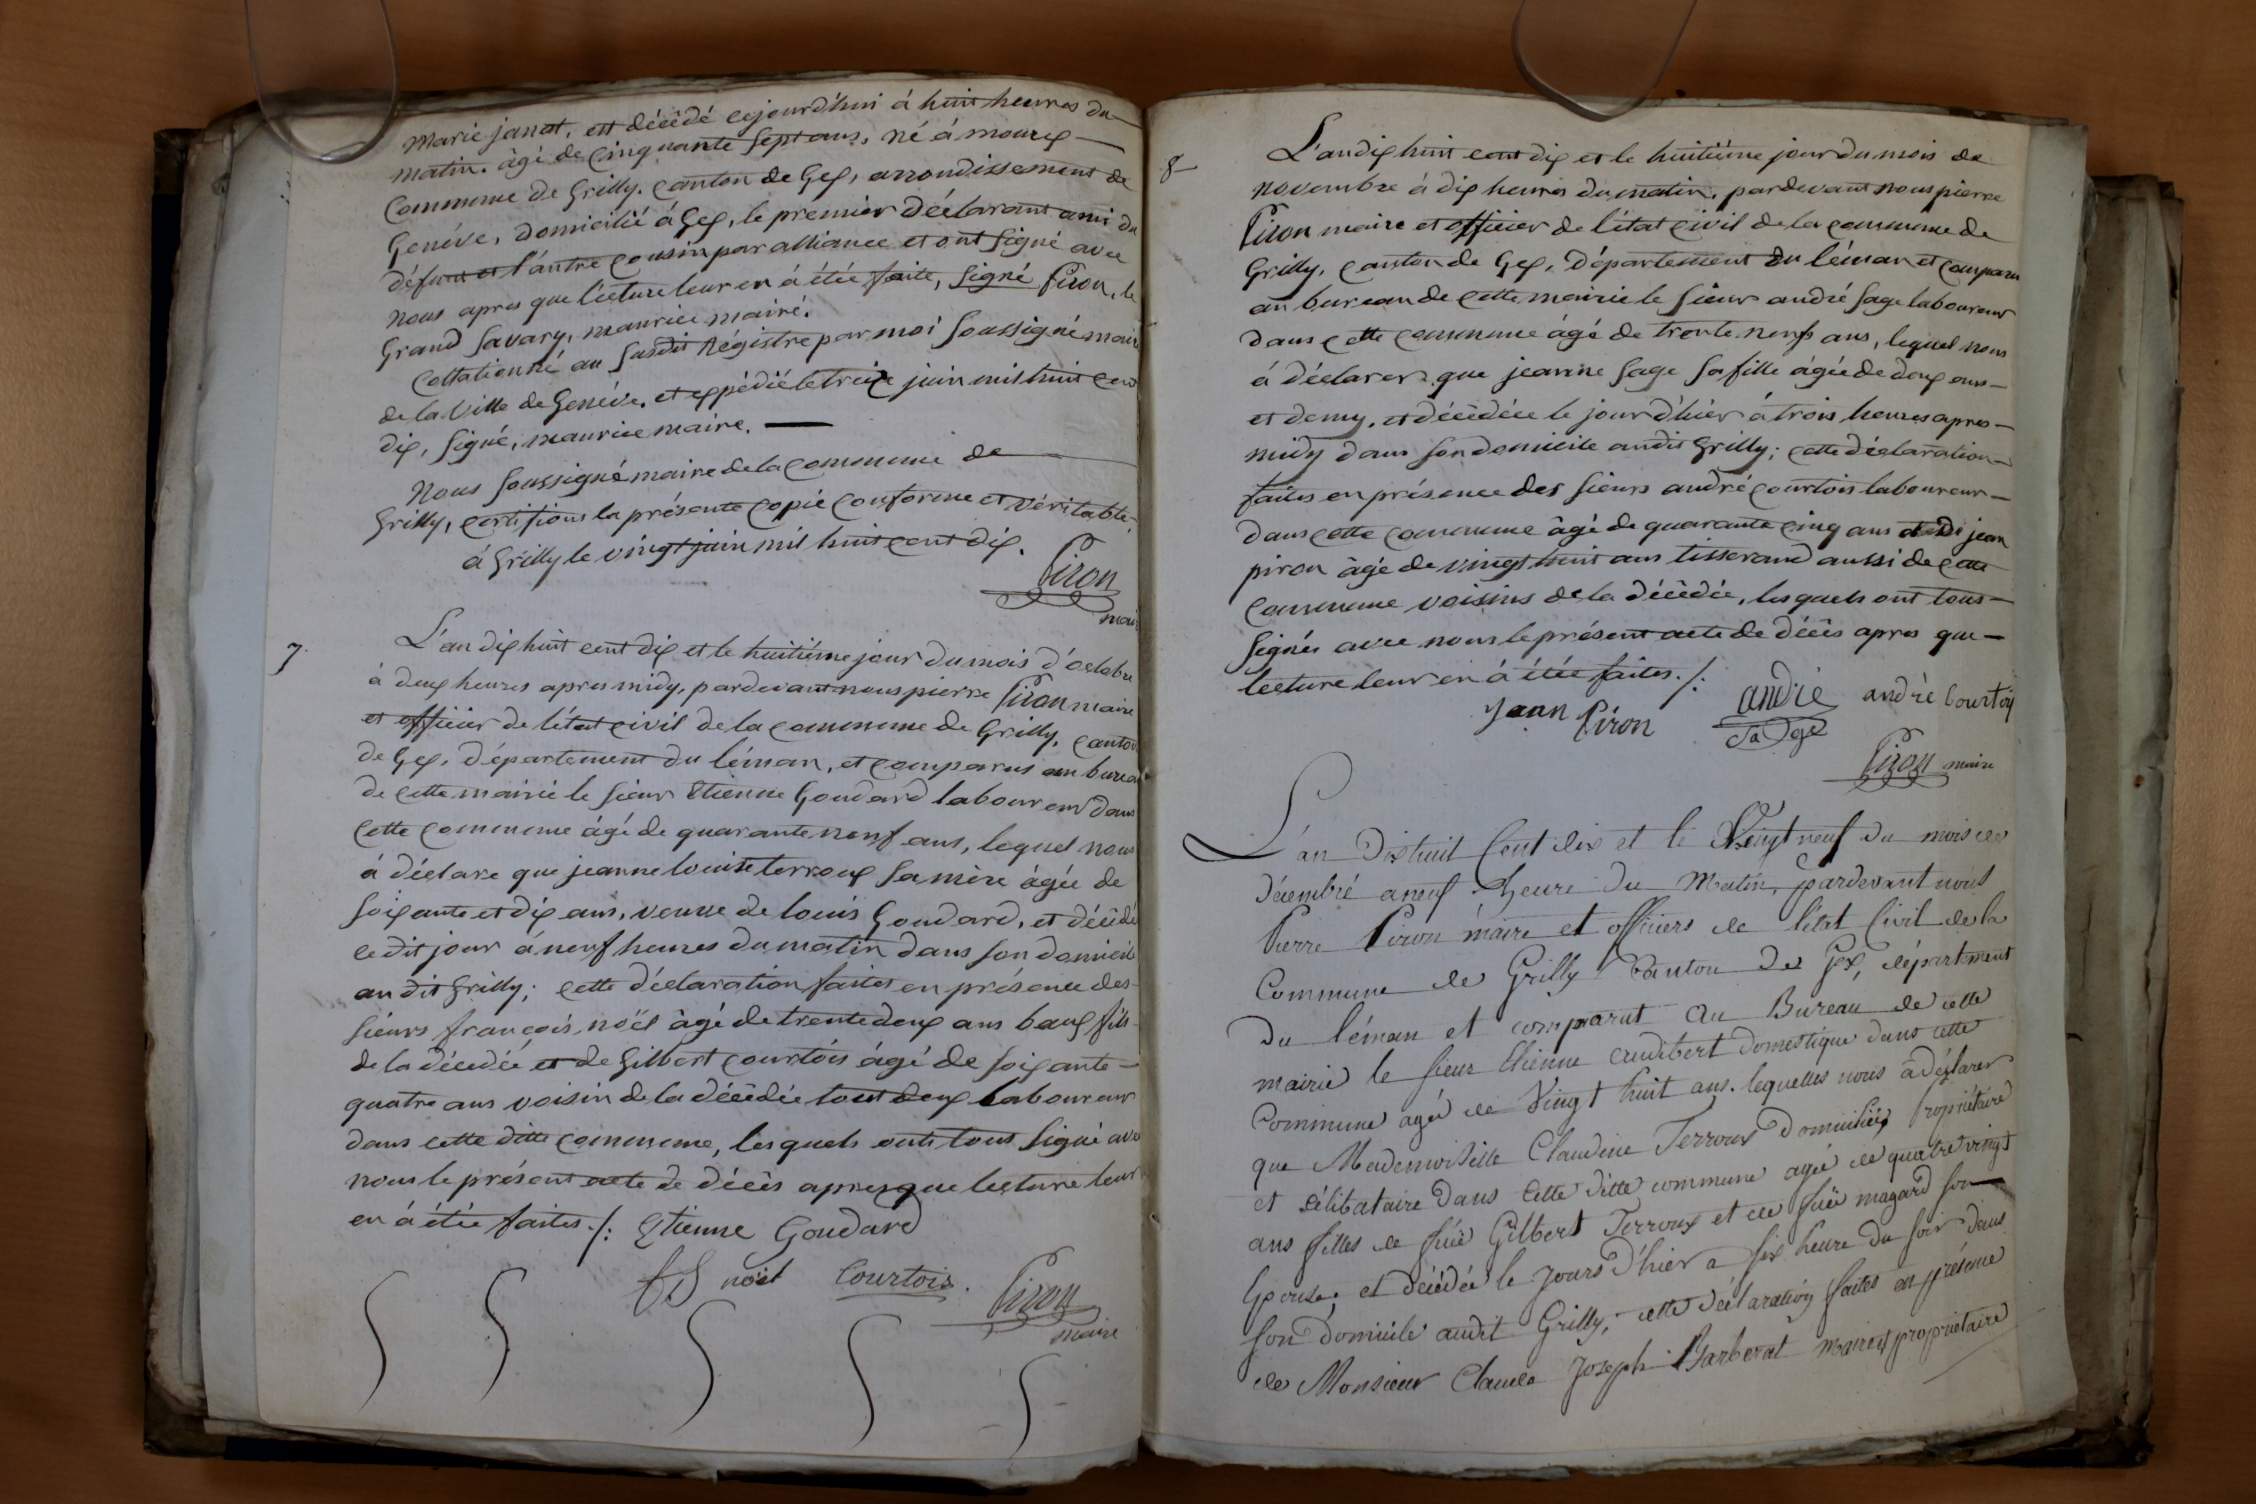 Marie janot, est décédé cejourd'hui á huit heures du
matin. âgé de Cinquante Sept ans, né á mourex
Commune de Grilly. Canton de Gex, arrondissement de
Genéve, domicilié á Gex, le premier déclarant ami du
défunt et l'autre Cousin par alliance et ont Signé avec
nous apres que lecture leur en á étée faite, Signé Piron, le
Grand Savary, maurice mairé.
Collationné au Susdit Régistre par moi Soussigné maire
de la ville de Genéve. et expédié le treize juin mil huit cent
dix, Signé, maurice maire.
Nous Soussigné maire de la Commune de
Grilly, Certifions la présente Copie Conforme et véritable
á Grilly le vingt juin mil huit cent dix.
Piron
maire
7.
L'an dix huit cent dix et le huitiéme jour du mois d'octobre
à deux heures apres midy, pardevant nous pierre Piron maire
et officier de l'état Civil de la Commune de Grilly, Canton
de Gex, département du léman, et Comparus au bureau
de Cette mairie le Sieur Etienne Goudard laboureur dans
Cette Commune âgé de quarante neuf ans, lequel nous
á déclare que jeanne louise terroux Sa mère âgée de
Soixante et dix ans, veuve de louis Goudard, et décédé
cedit jour á neuf heures du matin dans Son domicile
au dit Grilly; Cette déclaration faites en présence des
Sieurs françois noël âgé de trente deux ans beaux fils
de la décedée et de Gilbert Courtois âgé de Soixante
quatre ans voisin de la décédée tout deux laboureur
dans cette ditte Commune, lesquels onts tous Signé avec
nous le présent acte de décès apres que lecture leur
en á étée faites ./: Etienne Goudard
fs noël Courtois. Piron
maire
8
L'an dix huit cent dix et le huitiéme jour du mois de
novembre à dix heures du matin, pardevant nous pierre
Piron maire et officier de l'état Civil de la Commune de
Grilly, Canton de Gex, Département du léman et Comparu
au bureau de Cette mairie le Sieur andré Sage laboureur
dans Cette Commune âgé de trente neufs ans, lequel nous
á déclarer que jeanne Sage Sa fille âgée de deux ans
et demy, et décédée le jour d'hiér á trois heures apres
midy dans Son domicile audit Grilly; Cette déclaration
faites en présence des Sieurs andré Courtois laboureur
dans Cette Commune âgé de quarante Cinq ans et de jean
piron âgé de vingt huit ans tisserand aussi de Cette
Commune voisins de la décédée, lesquels ont tous
Signés avec nous le présent acte de décés apres que
lecture leur en á étée faites ./:
jean Piron andre Sage andrè Courtois
Piron maire
L'an Dixhuit Cent dix et le Vingt neuf du mois de
décembré a neuf heure du Matin, pardevant nous
Pierre Piron maire et officiers de l'état Civil de la
Commune de Grilly Canton de Gex, département
du léman et comparut au Bureau de cette
mairie le Sieur Etienne Audibert domestique dans cette
Commune agé de Vingt huit ans. lequelles nous à déclarer
que Mademoiselle Claudine Terroux Domiciliée, Propriétaire
et célibataire Dans Cette ditte commune agée de quatre vingt
ans filles de fûe Gilbert Terroux et de fûe magard Son
Epouse, et décédée le jours d'hier a Six heure du Soir dans
Son Domicile audit Grilly, cette déclaration faites en présence
de Monsieur Claude Joseph Barberat maire et propriétaire